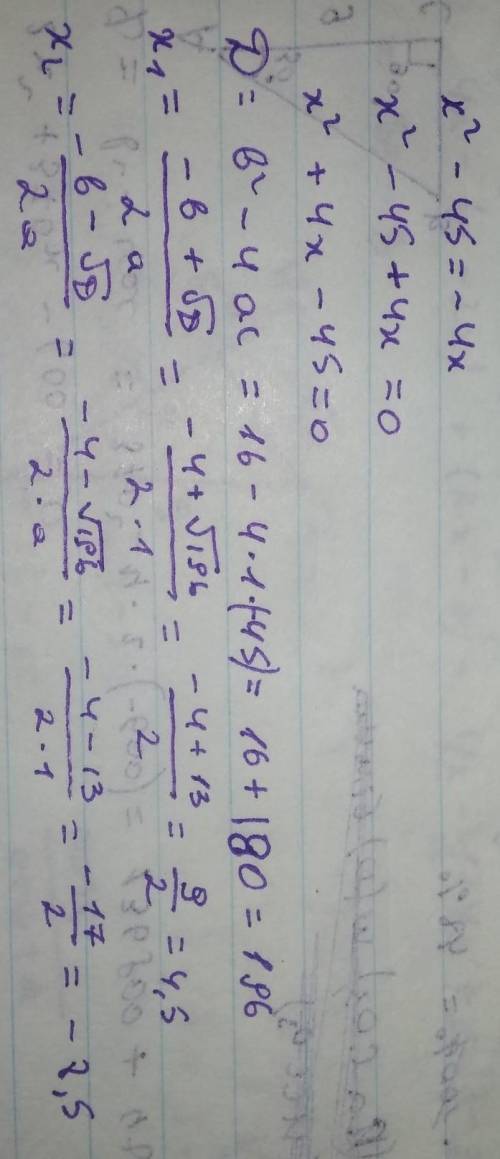 x² - 45 = -4x
x² - 45 + 4x = 0
x² + 4x - 45 = 0
D = b² - 4ac = 16 - 4·1·(-45) = 16 + 180 = 196
x₁ = (-b + √D)/(2a) = (-4 + √196)/(2·1) = (-4 + 13)/2 = 9/2 = 4,5
x₂ = (-b - √D)/(2a) = (-4 - √196)/(2·a) = (-4 - 13)/(2·1) = -17/2 = -7,5